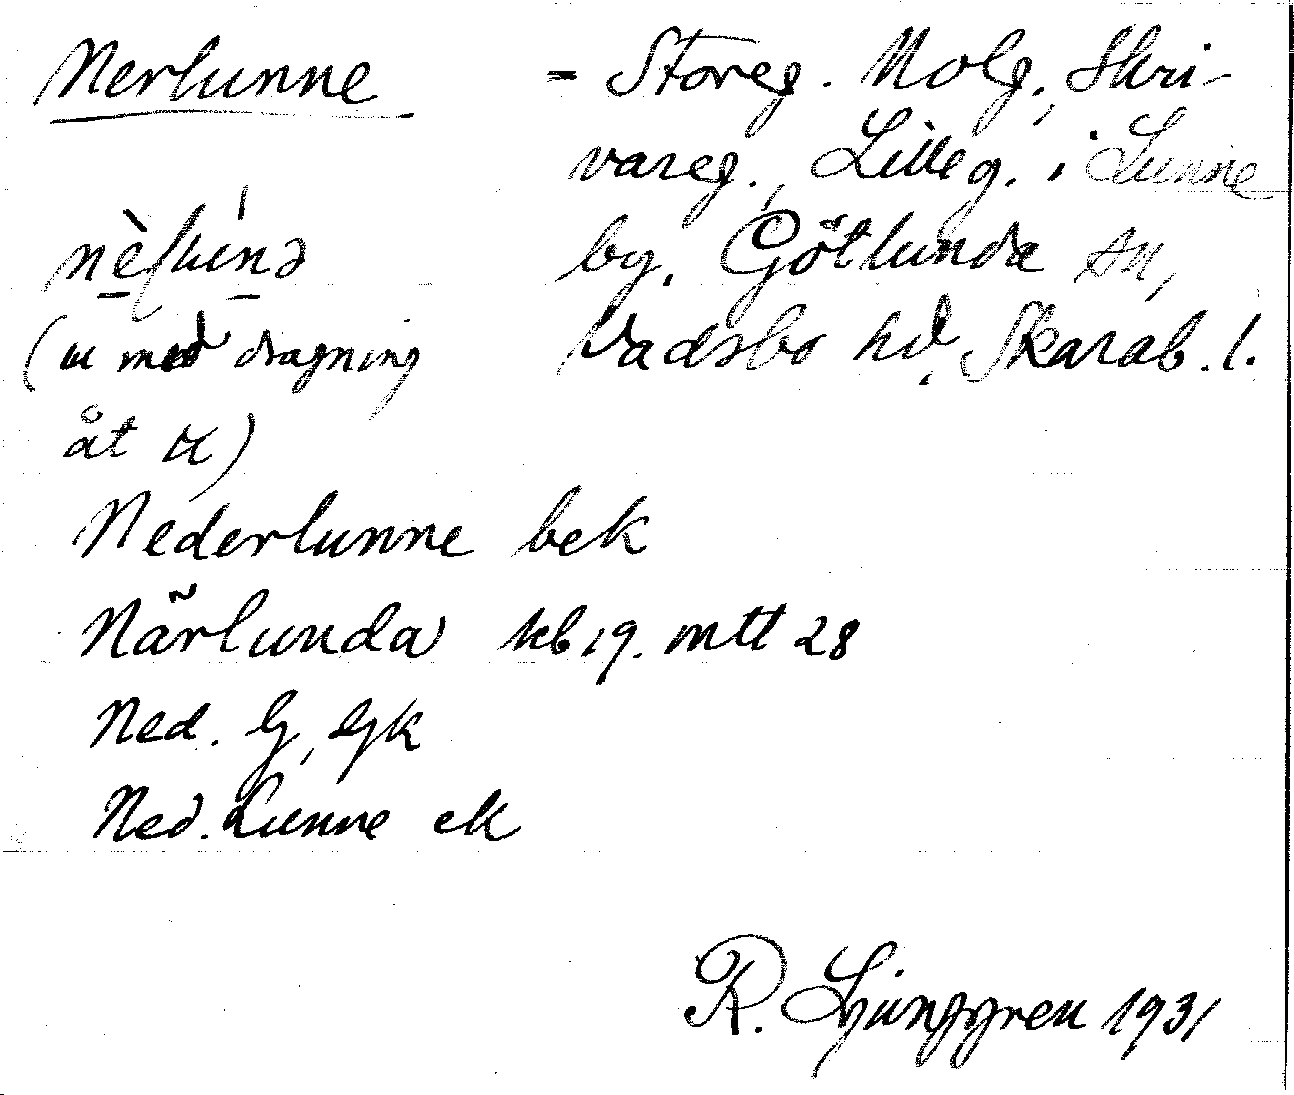 Nerlunne = Storeg. Nolg., Skri-
vareg., Lilleg. i Lunne
by, Götlunda sn,
Vadsbo hd, Skarab. l.
(u med dragning
åt )
Nederlunne bek
Närlunda kb 19. mtt 28
Ned. gk
Ned. Lunne ek
R. Ljunggren 1931